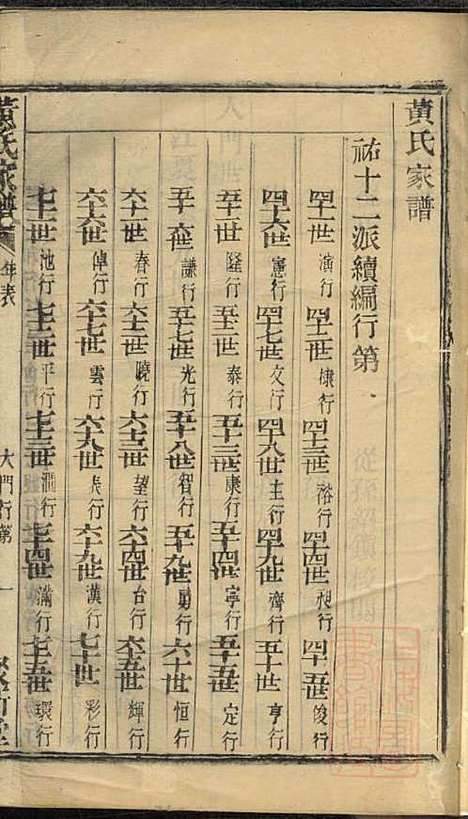 黃氏家譜
祐十二派續編行第
四十一世演行 四十二世棣行 四十三世裕行 四十四世昶行 四十五世俊行
四十六世憲行 四十七世文行 四十八世主行 四十九世齊行 五十世亨行
五十一世隆行 五十二世泰行 五十三世康行 五十四世寧行 五十五世定行
五十六世謙行 五十七世光行 五十八世智行 五十九世勇行 六十世恒行
六十一世春行 六十二世曉行 六十三世望行 六十四世台行 六十五世輝行
六十六世倬行 六十七世雲行 六十八世表行 六十九世漢行 七十世彩行
七十一世池行 七十二世平行 七十三世澗行 七十四世滿行 七十五世環行
黃氏家譜 年表 大門行第 一